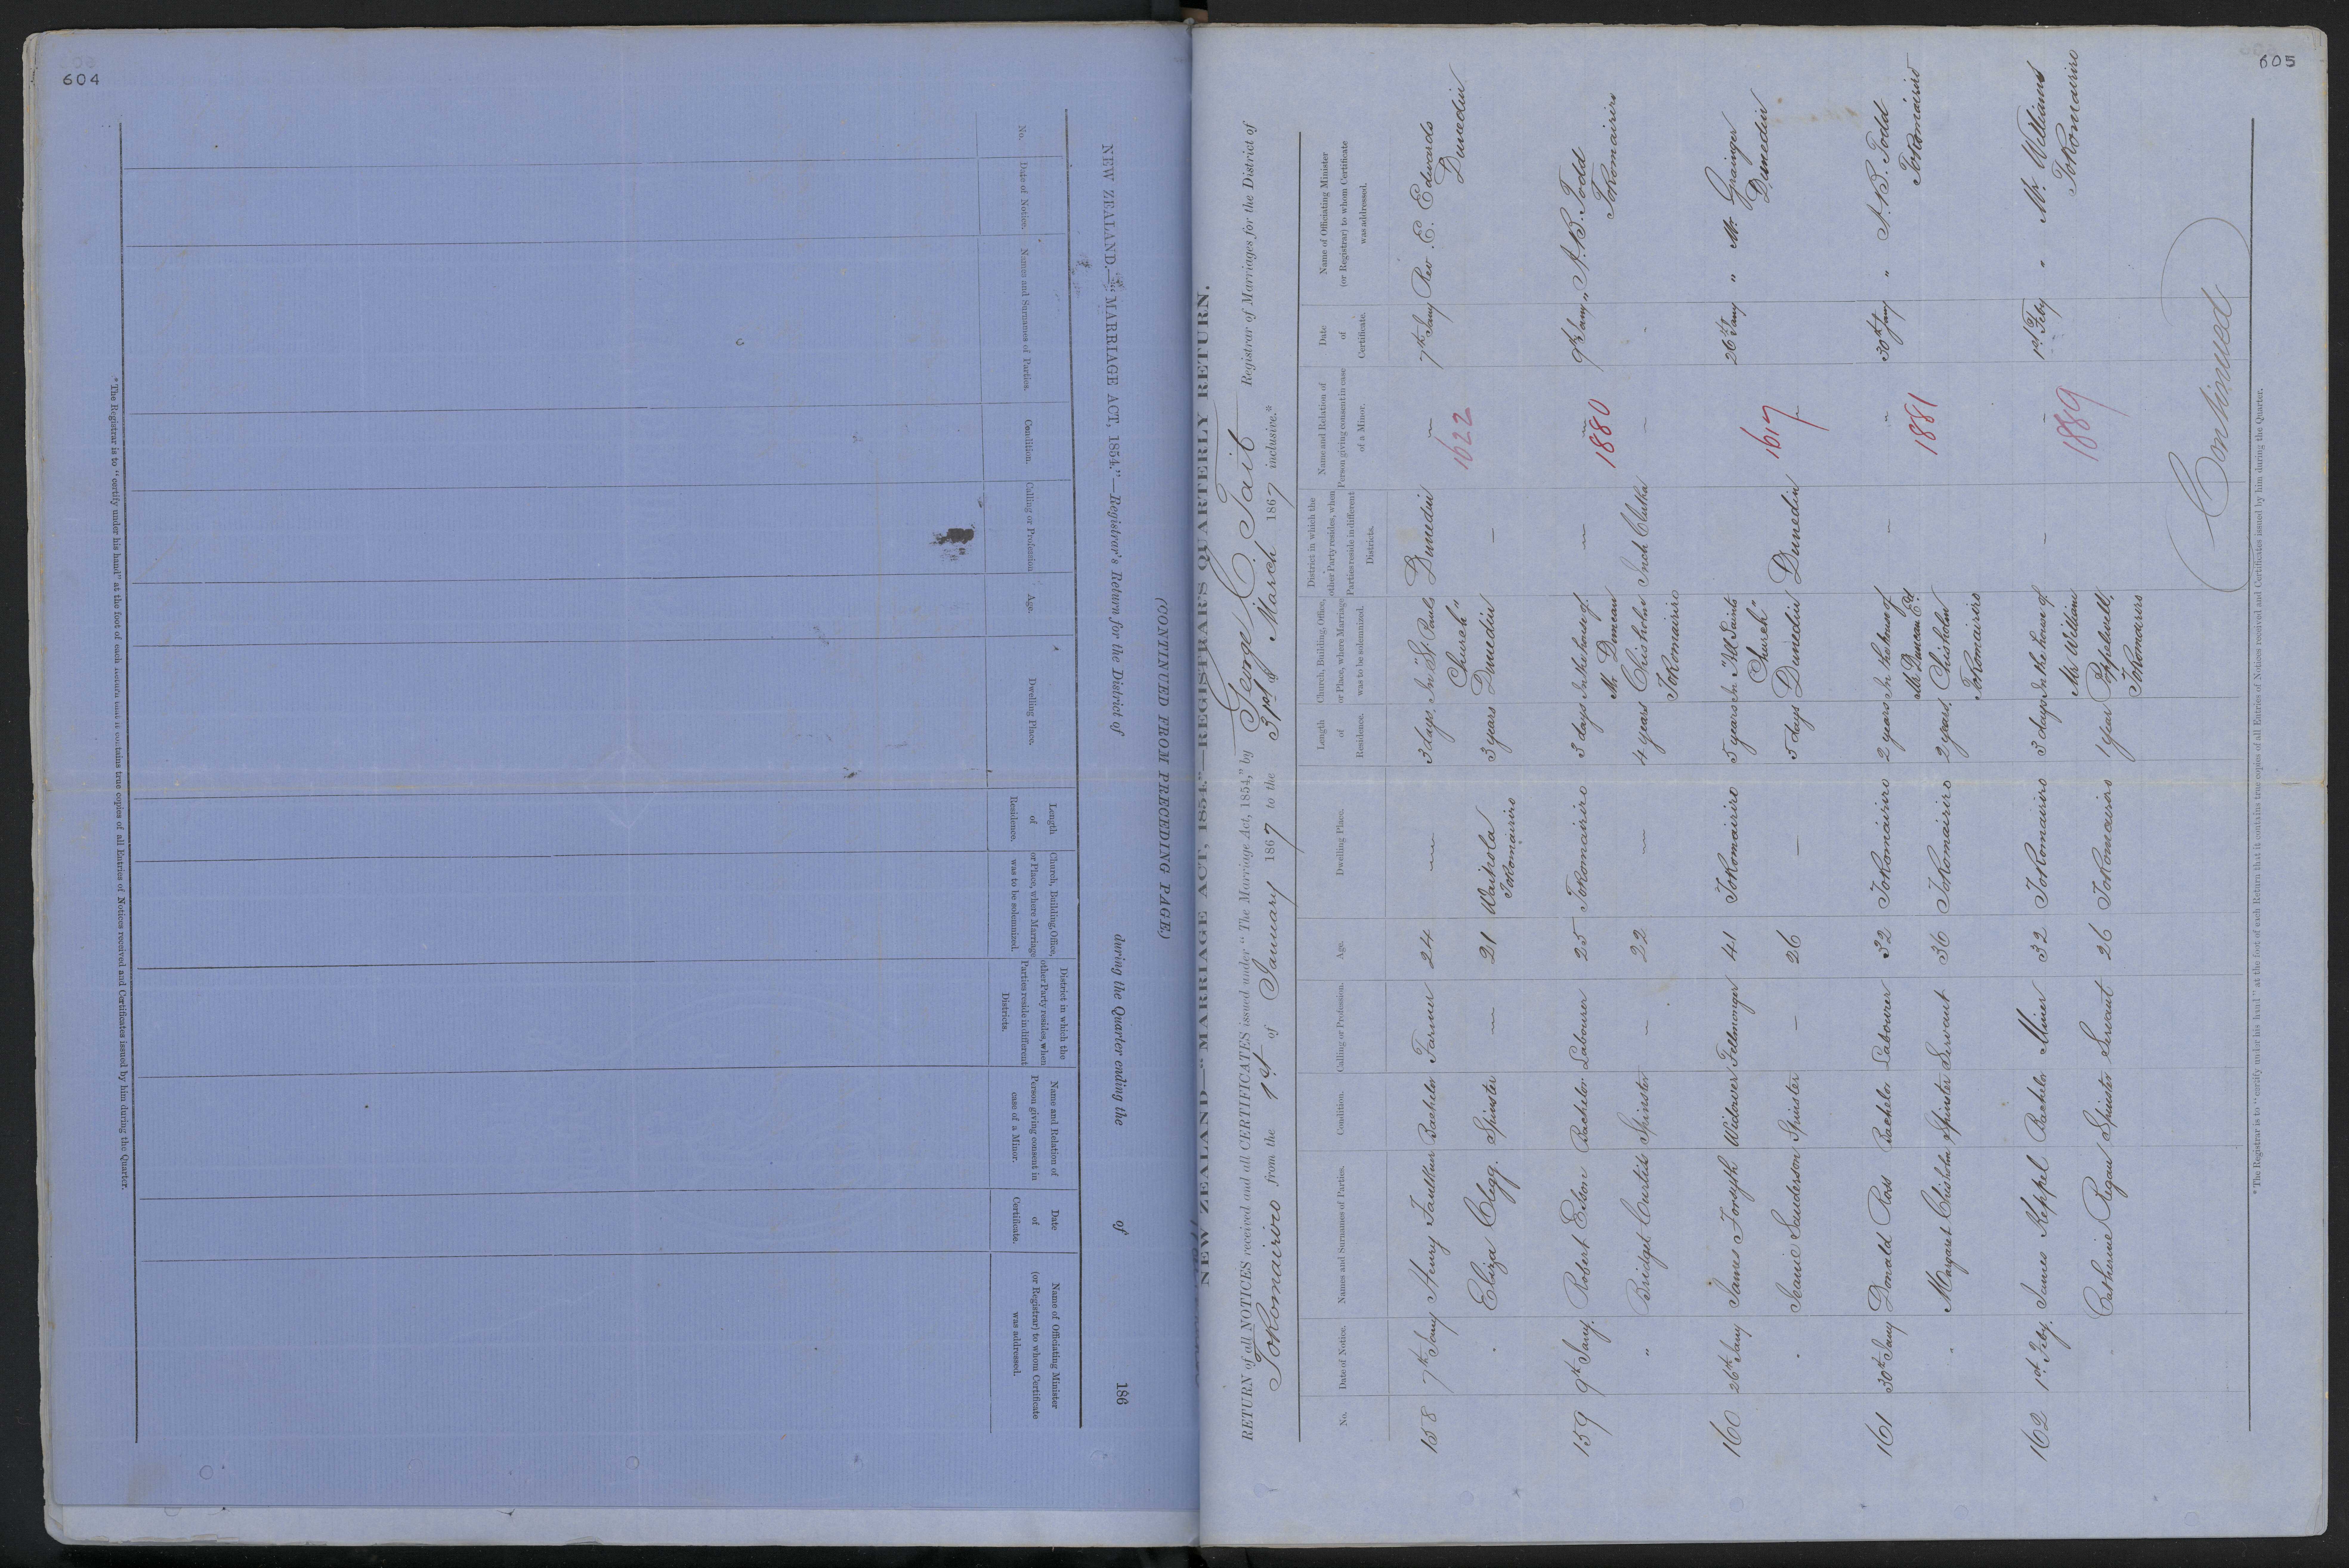 604
(CONTINUED FROM PRECEDING PAGE.)
NEW ZEALAND.—"MARRIAGE ACT, 1854."—Registrar's Return for the District of during the Quarter ending the of 186
No.
Date of Notice.
Names and Surnames of Parties.
Condition.
Calling or Profession
Age.
Dwelling Place.
Length of Residence.
Church, Building, Office, or Place, where Marriage was to be solemnized.
District in which the other Party resides, when Parties reside in different Districts.
Name and Relation of Person giving consent in case of a Minor.
Date of Certificate.
Name of Officiating Minister (or Registrar) to whom Certificate was addressed.
*The Registrar is to "certify under his hand" at the foot of each Return that it contains true copies of all Entries of Notices received and Certificates issued by him during the Quarter.
605
NEW ZEALAND—"MARRIAGE ACT, 1854."—REGISTRAR'S QUARTERLY RETURN.
RETURN of all NOTICES received and all CERTIFICATES issued under "The Marriage Act, 1854," by George C. Tait Registrar of Marriages for the District of
Tokomairiro from the 1st of January 1867 to the 31st of March 1867 inclusive.*
No.
Date of Notice.
Names and Surnames of Parties.
Condition.
Calling or Profession.
Age.
Dwelling Place.
Length of Residence.
Church, Building, Office, or Place, where Marriage was to be solemnized.
District in which the other Party resides, when Parties reside in different Districts.
Name and Relation of Person giving consent in case of a Minor.
Date of Certificate.
Name of Officiating Minister (or Registrar) to whom Certificate was addressed.
158 7th Jany Henry Faulkner Bachelor Farmer 24 — 3 days In "St Pauls Dunedin — 7th Jany Rev. E. Edwards
Church" 1622 Dunedin
" Eliza Clegg. Spinster — 21 Waihola 3 years Dunedin —
Tokomairiro
159 9th Jany. Robert Edson Bachelor Labourer 25 Tokomairiro 3 days In the house of — — 9th Jany " A. B. Todd
Mr Duncan 1880 Tokomairiro
" Bridget Curtis Spinster — 22 — 4 years Chisholm Inch Clutha — -
Tokomairiro
160 26th Jany James Forsyth Widower Fellmonger 41 Tokomairiro 5 years In "All Saints 26th Jany " Mr Grainger
Church" 1617 Dunedin
" Jeanie Sanderson Spinster — 26 — 5 days Dunedin Dunedin —
161 30th Jany Donald Ross Bachelor Labourer 32 Tokomairiro 2 years In the house of — " 30th Jany " A. B. Todd
Mr Duncan Ed. 1881 Tokomairiro
" Margaret Chisholm Spinster Servant 36 Tokomairiro 2 years Chisholm
Tokomairiro
162 1st Feby. James Keppel Bachelor Miner 32 Tokomairiro 3 days In the house of — — 1st Feby " Mr Williams
Mr William 1889 Tokomairiro
" Catherine Regan Spinster Servant 26 Tokomairiro 1 year Poppelwell,
Tokomairiro
Continued
*The Registrar is to "certify under his hand" at the foot of each Return that it contains true copies of all Entries of Notices received and Certificates issued by him during the Quarter.